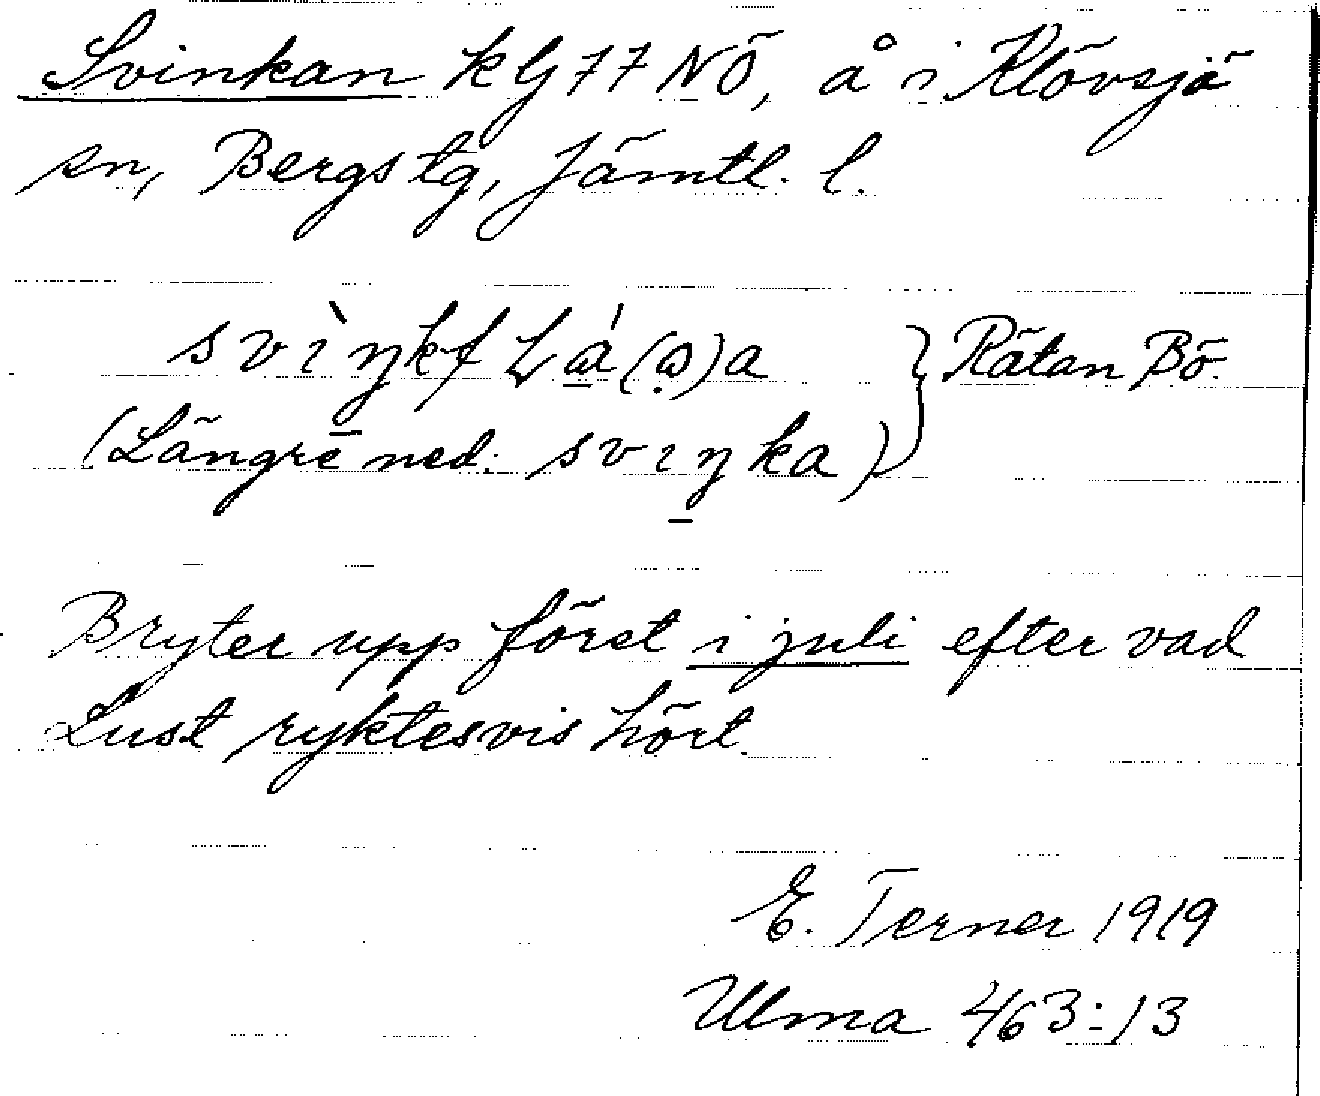 Svinkan kg 77 NÖ, å i Klövsjö
sn, Bergs tg, Jämtl. l.
svìŋkfʟá̠(ạ)a } Rätan Bö.
(Längre ned: svıŋka)
Bryter upp först i juli efter vad
Lust ryktesvis hört.
E. Terner 1919
Ulma 463:13